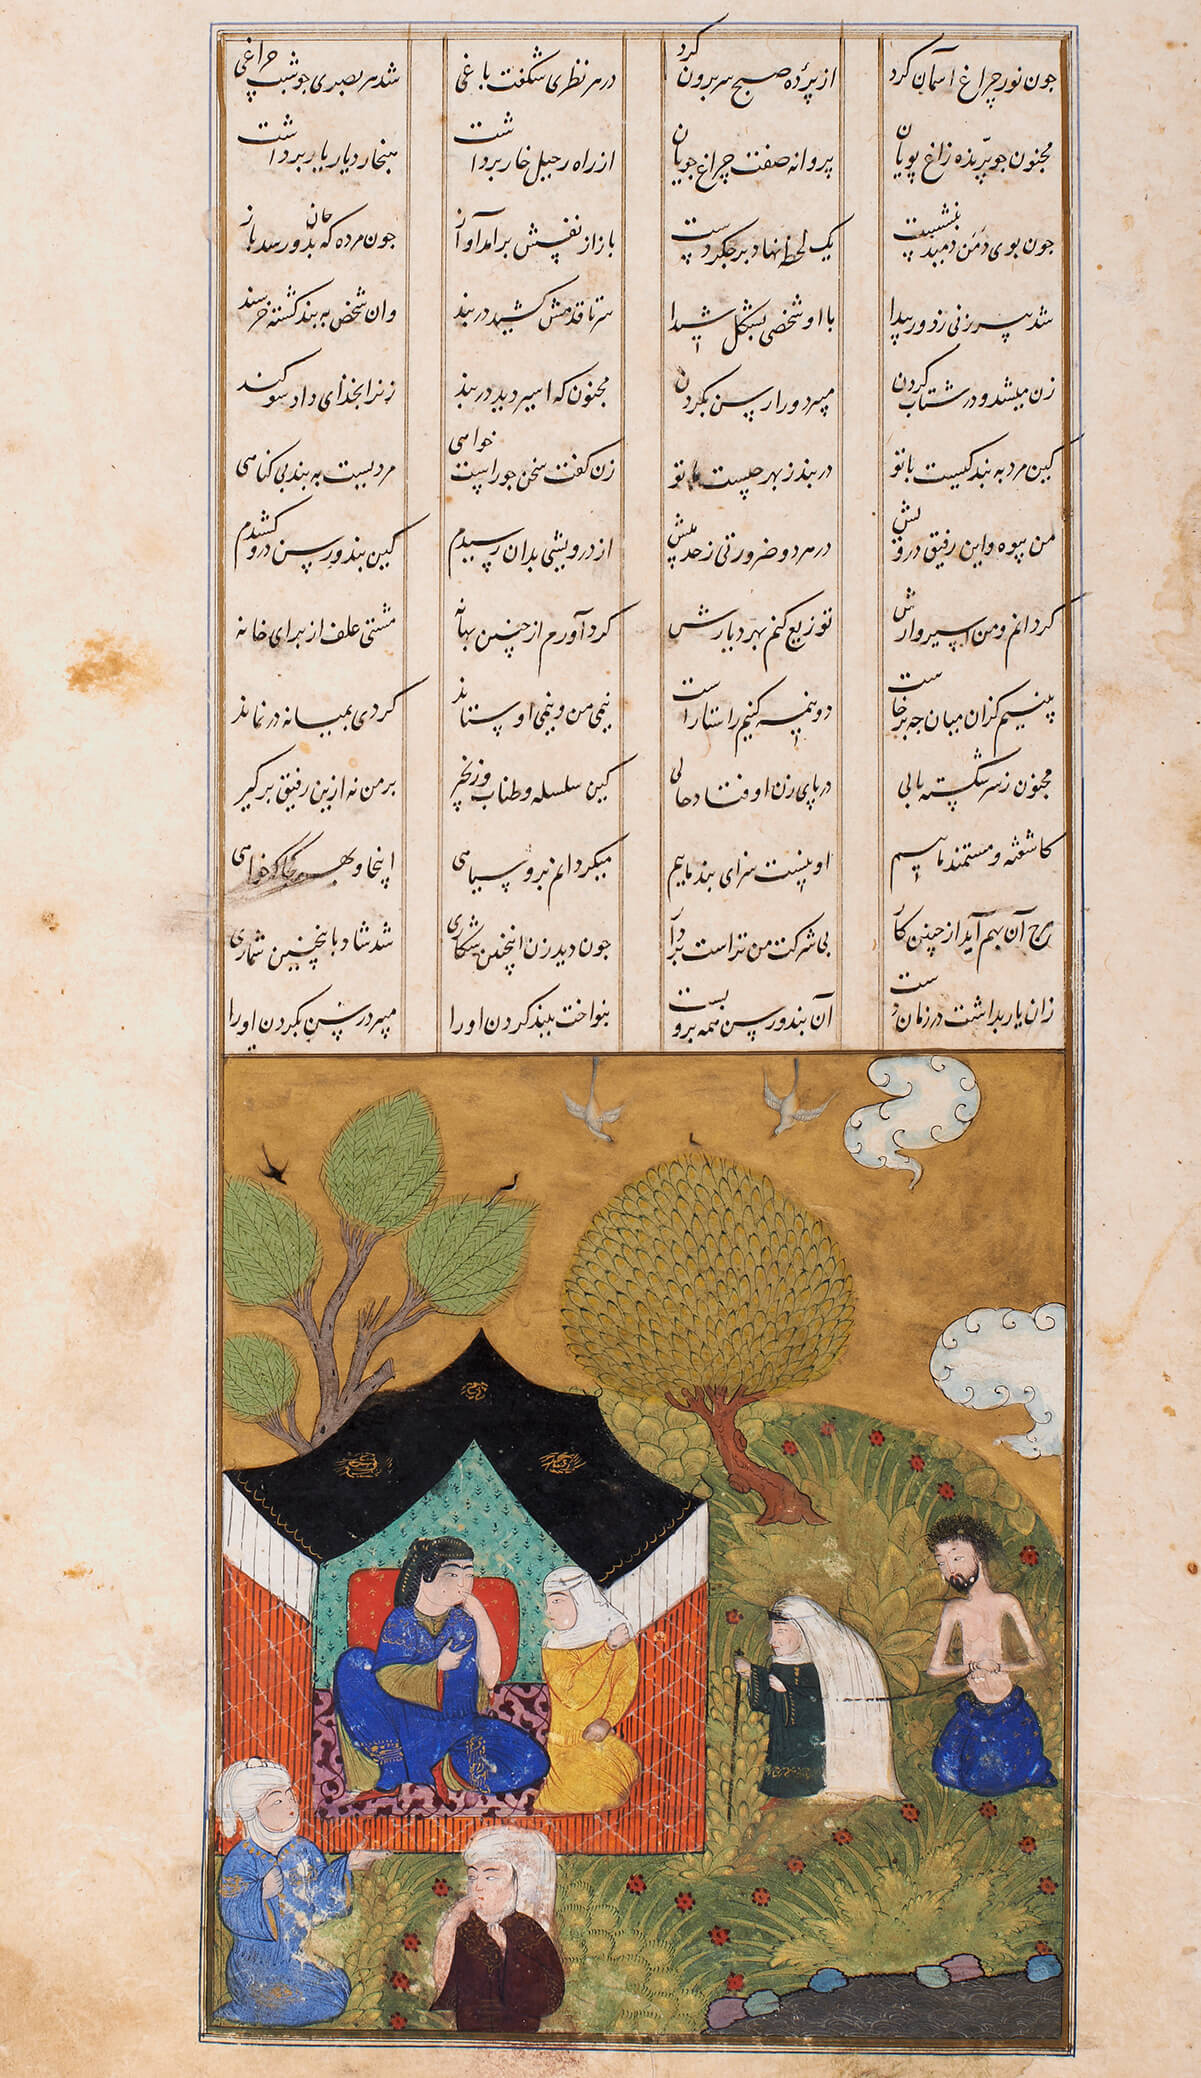 جون نور چراغ آسمان کرد از پرده صبح سر برون کرد در هر نظری شکفت باغی شد هر بصری جو شب چراغی
مجنون جو پرنده زاغ پویان پروانه صفت چراغ جویان از راه رحیل خار برداشت هنجار دیار یار برداشت
جون بوی دمن دمید بنشست یک لحظه نهاد بر جکر دست باز از نفسش برامد آواز جون مرده که جان بذو رسد باز
شد پیرزنی ز دور پیدا با او شخصی بشکل شیدا سر تا قدمش کشید در بند وان شخص به بند کشته خرسند
زن میشد و در شتاب کردن میبرد ورا رسن بکردن مجنون که اسیر دید در بند زنرا بخذای داد سوکند
کین مرد به بند کیست با تو در بند ز بهر چیست با تو زن کفت سخن جو راست خواهی مردیست به بند بی کناهی
من بیوه و این رفیق درویش در هر دو ضرورتی ز حد بیش از درویشی بدان رسیدم کین بند و رسن درو کشیدم
کردانم و من اسیر وارش توزیع کنم بهر دیارش کرد آورم از چنین بهانه مشتی علف از برای خانه
بینیم کزان میان جه برخاست دو نیمه کنیم راستا راست نیمی من و نیمی او ستاند کردی بمیانه در نماند
مجنون ز سر شکسته بالی در پای زن اوفتاد حالی کین سلسله و طناب و زنجیر بر من نه ازین رفیق برکیر
کاشفته و مستمند ماییم او نیست سزای بند ماییم میکردانم برو سیاهی اینجا و بهر کجا که خواهی
هرچ آن بهم آید از چنین کار بی شرکت من تراست بردار جون دید زن اینچنین شکاری شد شاد باینچنین شماری
زان یار بداشت در زمان دست آن بند و رسن همه برو بست بنواخت ببند کردن او را میبرد رسن بکردن او را